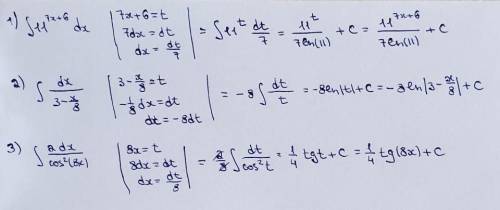 1) ∫11^(7x+6) dx | 7x+6=t  7dx=dt  dx=dt/7 | = ∫11^t dt/7 = 11^t/(7ln(11)) + C = 11^(7x+6)/(7ln(11)) + C
2) ∫ dx/(3-x/8) | 3-x/8=t  -1/8 dx=dt  dt=-8dt | = -8∫ dt/t = -8ln|t|+C = -8ln|3-x/8|+C
3) ∫ 2dx/cos²(8x) | 8x=t  8dx=dt  dx=dt/8 | = 2/8 ∫ dt/cos²t = 1/4 tgt+C = 1/4 tg(8x)+C